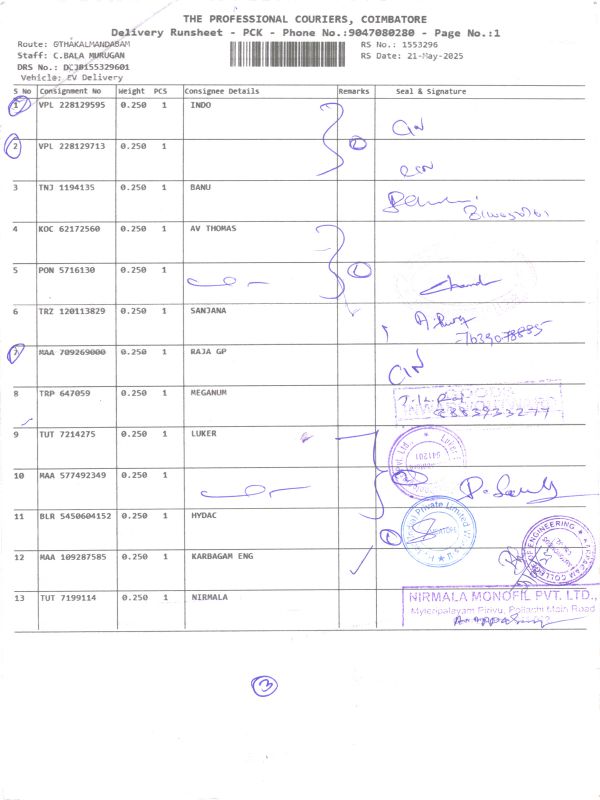 THE PROFESSIONAL COURIERS, COIMBATORE
Delivery Runsheet - PCK - Phone No.:9047080280 - Page No.:1
Route: OTHAKALMANDABAM
RS No.: 1553296
Staff: C.BALA MURUGAN
RS Date: 21-May-2025
DRS No.: DCJ0155329601
Vehicle: EV Delivery
S No Consignment No Weight PCS Consignee Details Remarks Seal & Signature
1 VPL 228129595 0.250 1 INDO
2 VPL 228129713 0.250 1
3 TNJ 1194135 0.250 1 BANU
4 KOC 62172560 0.250 1 AV THOMAS
5 PON 5716130 0.250 1
6 TRZ 120113829 0.250 1 SANJANA
7 MAA 709269000 0.250 1 RAJA GP
8 TRP 647059 0.250 1 MEGANUM
8883933277
9 TUT 7214275 0.250 1 LUKER
641201
10 MAA 577492349 0.250 1
11 BLR 5450604152 0.250 1 HYDAC
12 MAA 109287585 0.250 1 KARBAGAM ENG
13 TUT 7199114 0.250 1 NIRMALA
NIRMALA MONOFIL PVT. LTD.,
Myleripalayam Pirivu, Pollachi Main Road
3